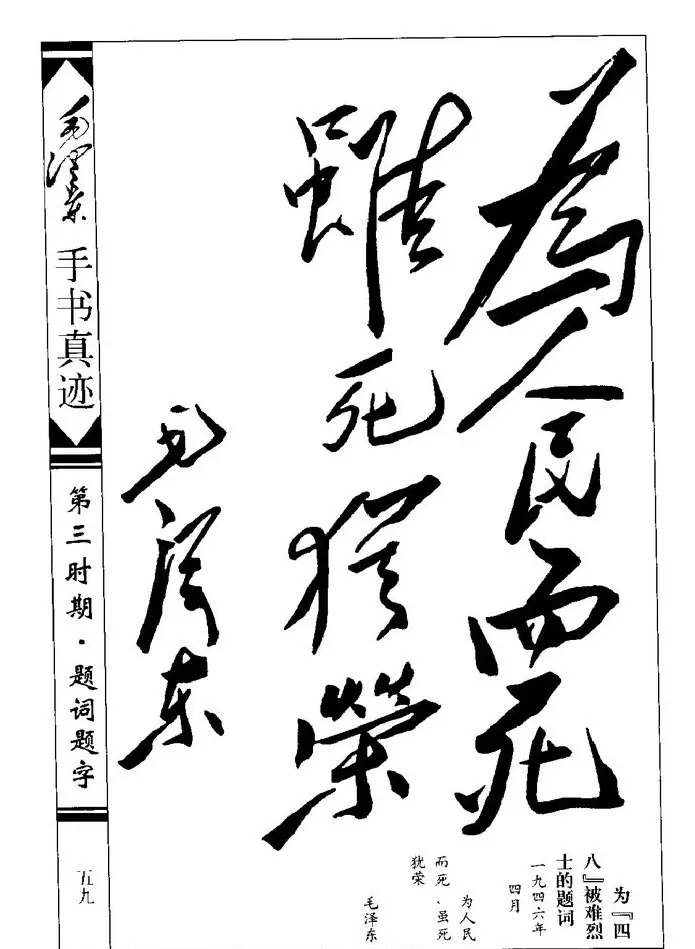 為人民而死
雖死猶榮
毛泽东
为『四
八』被难烈
士的题词
一九四六年
四月
为人民
而死、虽死
犹荣
毛泽东
毛泽东
手书真迹
第三时期·题词题字
五九